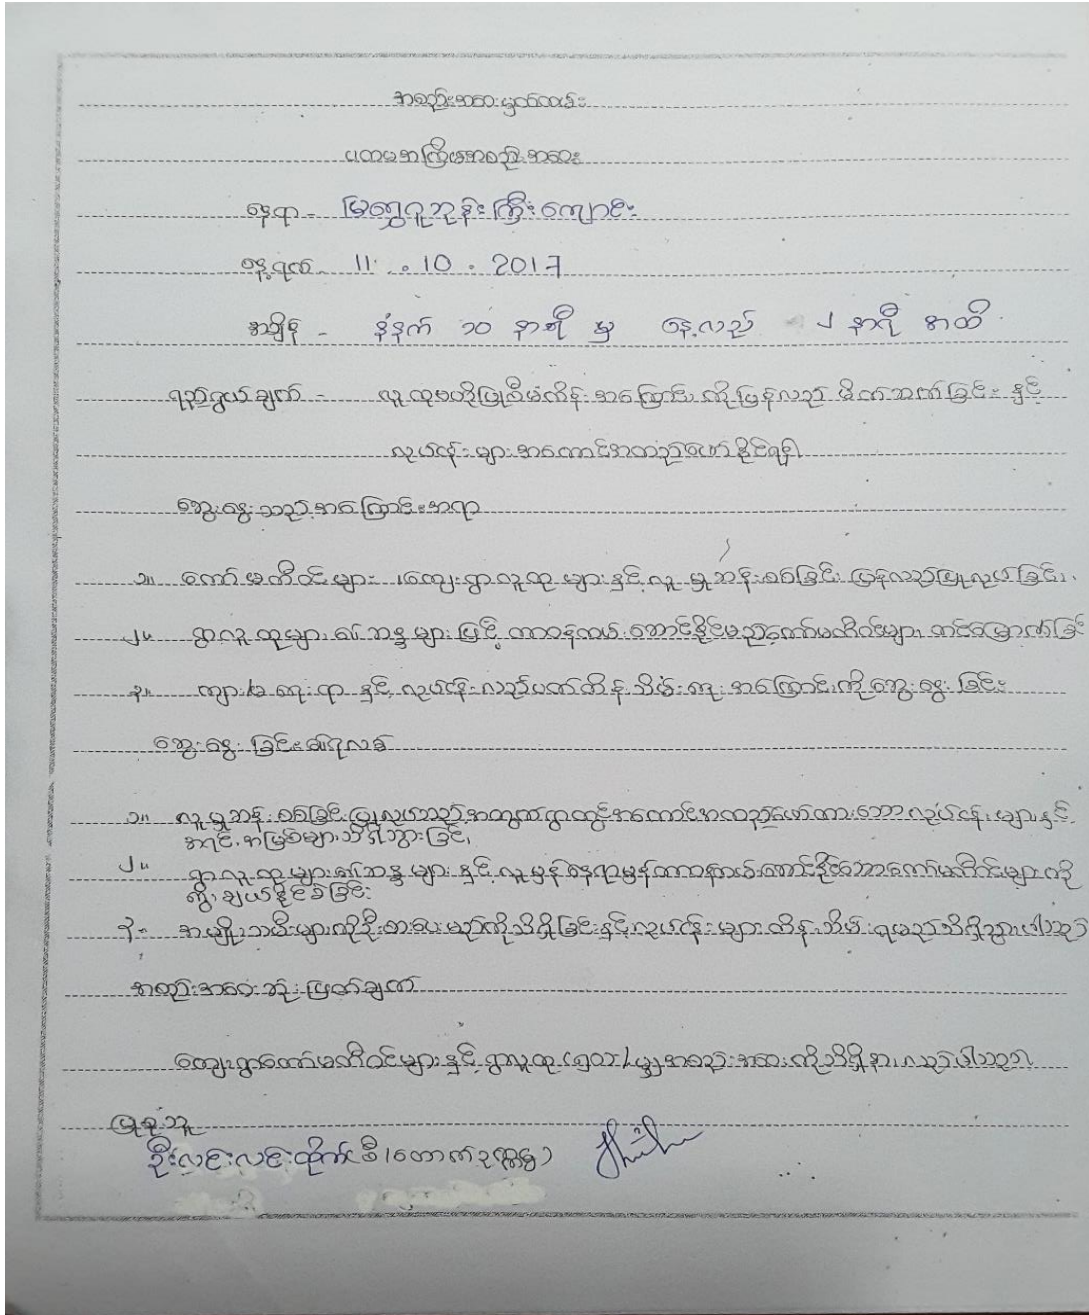 အစည်းအဝေးမှတ်တမ်း
ပထမအကြိမ်အစည်းအဝေး
နေရာ - မြရွှေဂူဘုန်းကြီးကျောင်း
နေ့ရက် - 11 . 10 . 2017
အချိန် - နံနက် ၁၀ နာရီ မှ နေ့လည် ၂ နာရီ အထိ
ရည်ရွယ်ချက် - လူထုဗဟိုပြုစီမံကိန်းအကြောင်းကိုပြန်လည်မိတ်ဆက်ခြင်းနှင့်
လုပ်ငန်းများအကောင်အထည်ဖော်နိုင်ရန်
ဆွေးနွေးသည့်အကြောင်းအရာ
၁။ ကော်မတီဝင်များ၊ ကျေးရွာလူထုများနှင့်လူမှုဆန်းစစ်ခြင်း ပြန်လည်ပြုလုပ်ခြင်း၊
၂။ ရွာလူထုများ၏ဆန္ဒများဖြင့် တာဝန်ထမ်းဆောင်နိုင်မည့်ကော်မတီဝင်များ တင်မြှောက်ခြင်း
၃။ ကျား/မ ရေးရာနှင့် လုပ်ငန်းလည်ပတ်ထိန်းသိမ်းရေးအကြောင်းကိုဆွေးနွေးခြင်း
ဆွေးနွေးခြင်း၏ရလဒ်
၁။ လူမှုဆန်းစစ်ခြင်းပြုလုပ်သည့်အတွက်ရွာတွင်အကောင်အထည်ဖော်ထားသောလုပ်ငန်းများနှင့်
အရင်းအမြစ်များသိရှိသွားခြင်း၊
၂။ ရွာလူထုများ၏ဆန္ဒများနှင့်လူမှန်နေရာမှန်တာဝန်ထမ်းဆောင်နိုင်သောကော်မတီဝင်များကို
ရွေးချယ်နိုင်ခဲ့ခြင်း
၃။ အမျိုးသမီးများကိုဦးစားပေးမည်ကိုသိရှိခြင်းနှင့်လုပ်ငန်းများထိန်းသိမ်းရမည်သိရှိသွားပါသည်
အစည်းအဝေးဆုံးဖြတ်ချက်
ကျေးရွာကော်မတီဝင်များနှင့်ရွာလူထု အစည်းအဝေးကိုသိရှိနားလည်ပါသည်။
ပြုစုသူ
ဦးလင်းလင်းထိုက်